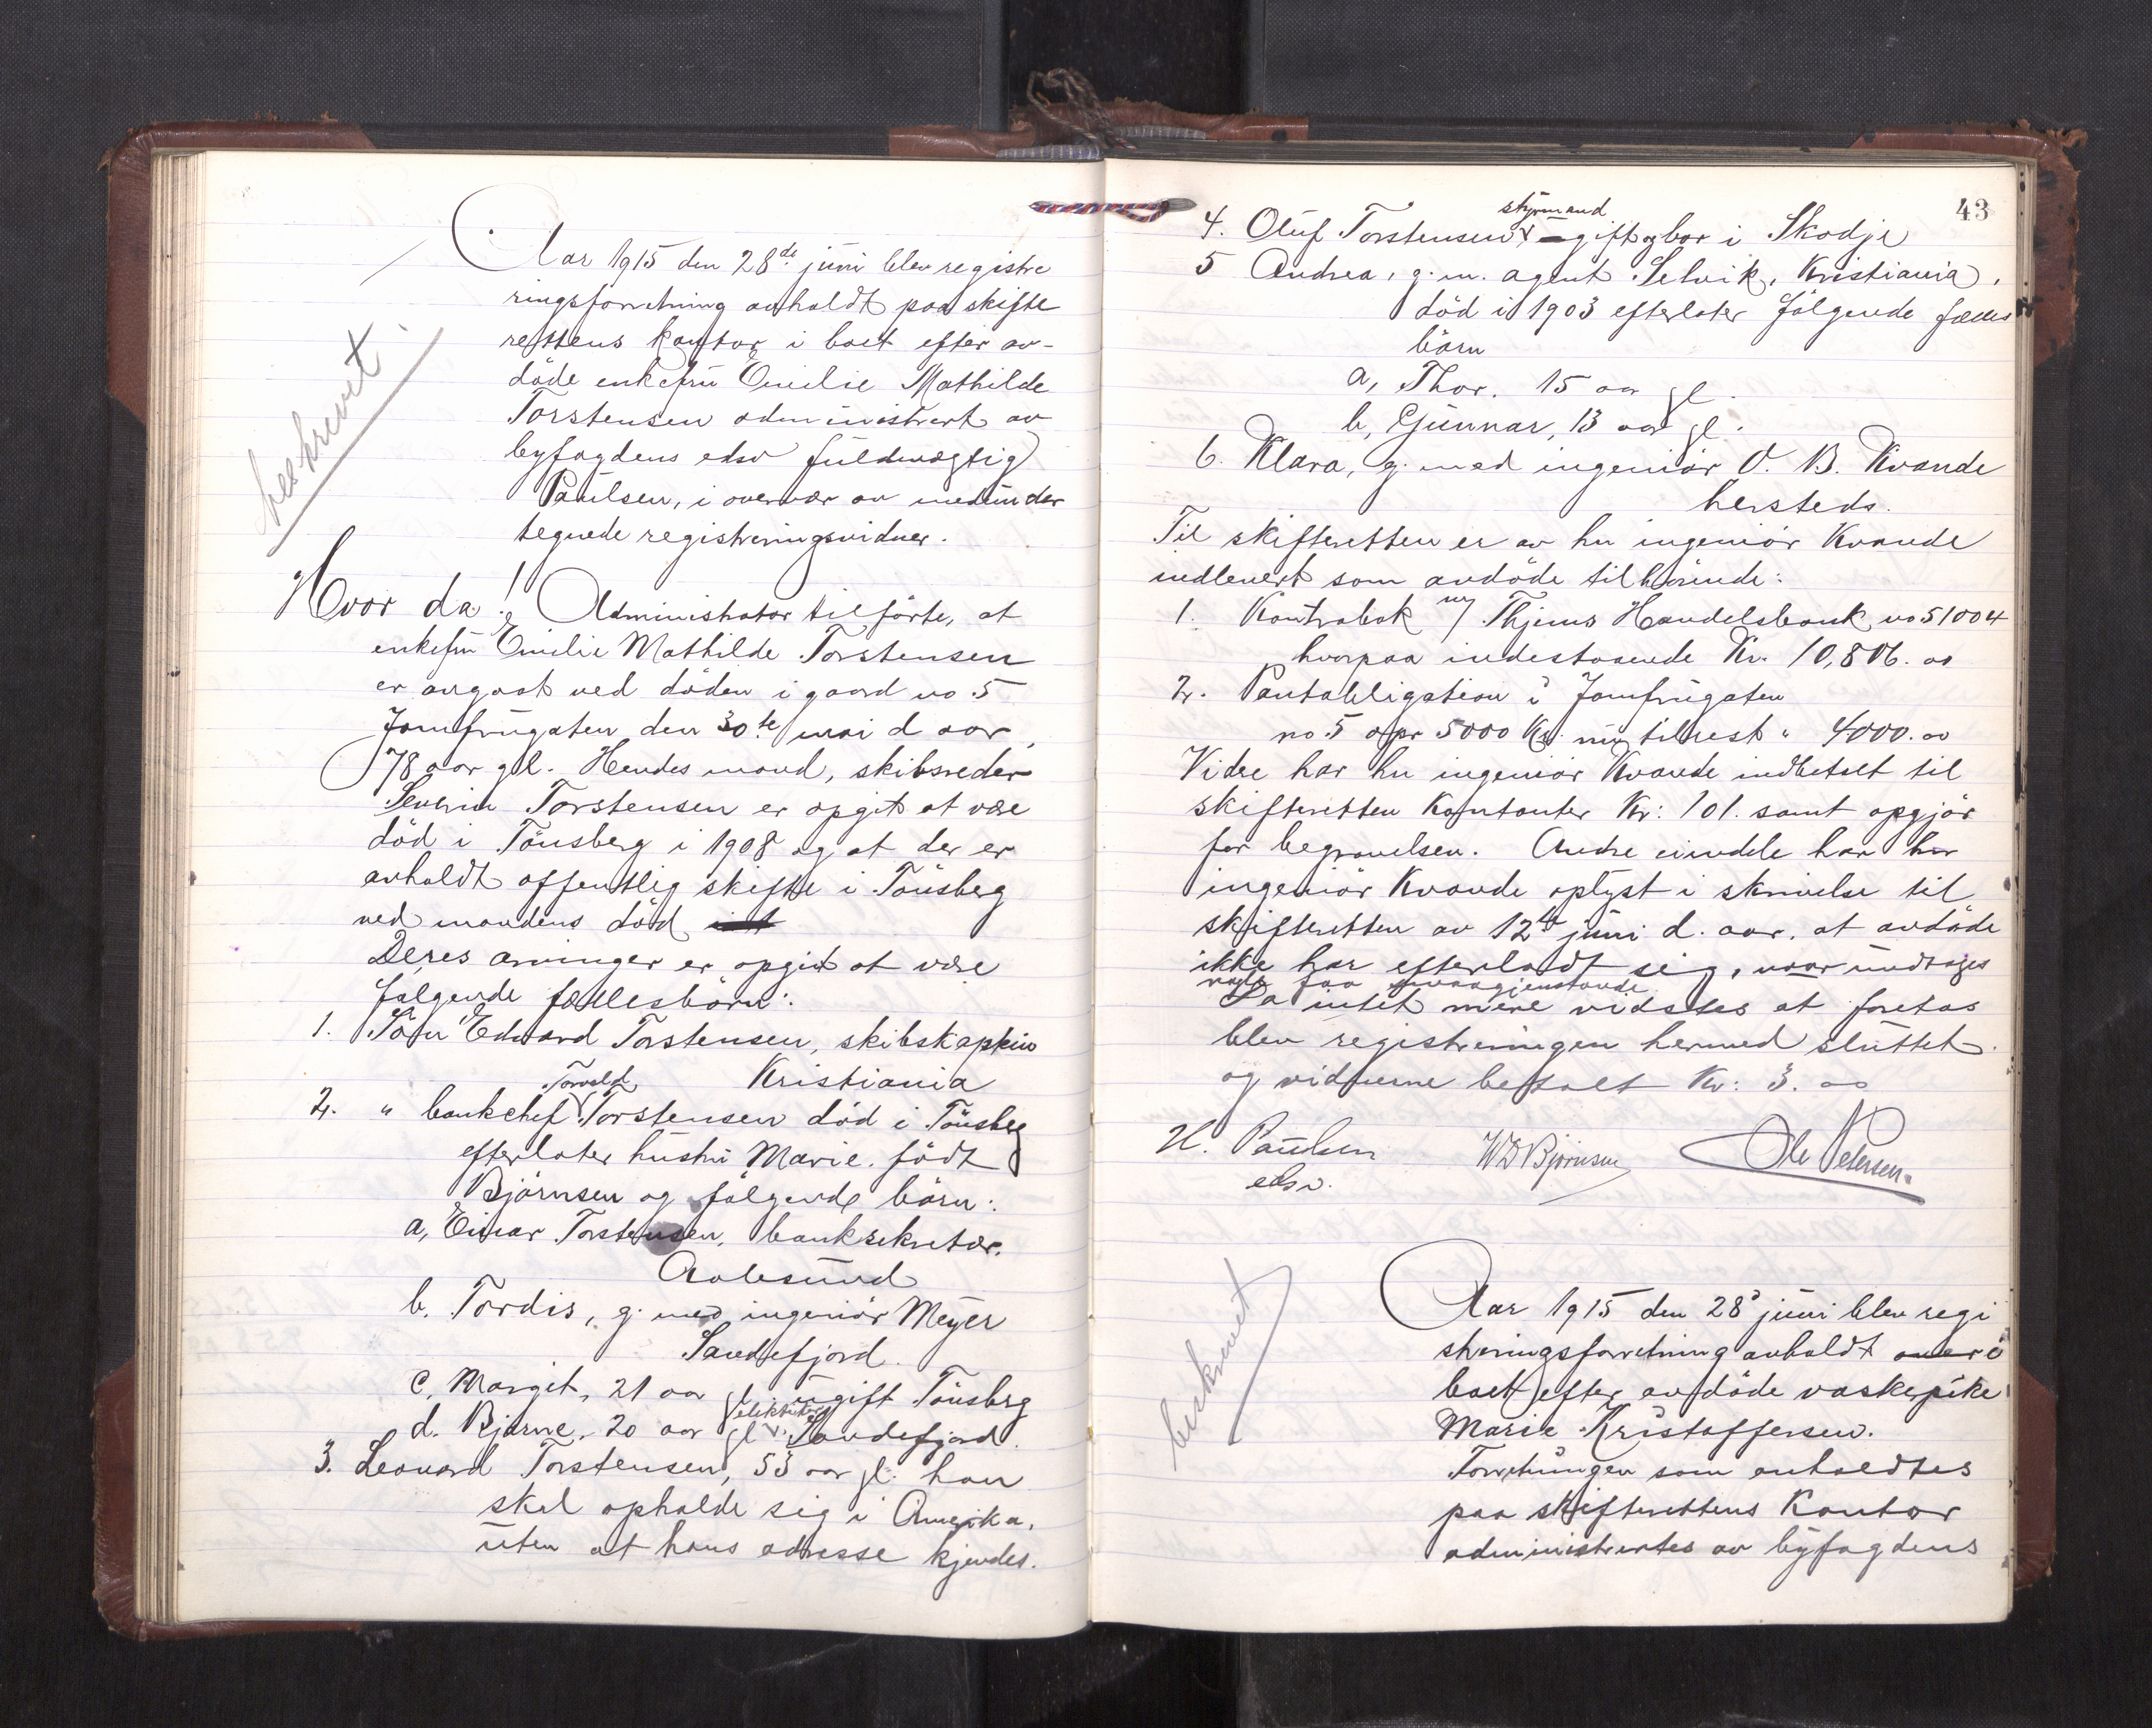 Aar 1915 den 28de juni blev registre
ringsforretning avholdt paa skifte
rettens kontor i boet efter av-
döde enkefru Emilie Mathilde
Torstensen administrert av
byfogdens edsv fuldmægtig
Paulsen, i overvær av medunder
tegnede registreringsvidner.
beskrevet
Hvor da! Administrator tilförte, at
enkefru Emilie Mathilde Torstensen
er avgaat ved döden i gaard no 5
Jomfrugaten den 30te mai d aar,
78 aar gl. Hendes mand, skibsreder
Severin Torstensen er opgit at være
död i Tönsberg i 1908 og at der er
avholdt offentlig skifte i Tönsberg
ved mandens död
Deres arvinger er opgit at være
fölgende fællesbörn:
1. Sön Edvard Torstensen, skibskaptein
Kristiania
2. " bankchef Torvald Torstensen död i Tönsberg
efterlater hustru Marie. födt
Björnsen og fölgende börn:
a, Einar Torstensen, banksekretær.
Aalesund
b. Tordis, g. med ingeniör Meyer
Sandefjord.
c, Margit, 21 aar gl. ugift Tönsberg
d. Bjarne, 20 aar gl elektriker Sandefjord.
3. Leonard Torstensen, 53 aar gl. han
skal opholde sig i Amerika,
uten at hans adresse kjendes.
43
4. Oluf Torstensen styrmand gift og bor i Skodje
5 Andrea, g. m. agent Selvik, Kristiania,
död i 1903 efterlater fölgende fælles
börn
a, Thor. 15 aar gl.
b, Gunnar, 13 aar gl.
6. Klara, g. med ingeniör O. B. Kvande
hersteds.
Til skifteretten er av hr ingeniör Kvande
indlevert som avdöde tilhörende:
1. Kontrabok m/ Thjems Handelsbank no 51004
hvorpaa indestaaende Kr. 10,806. 00
2. Pantobligation i Jomfrugaten
no 5 opr 5000 Kr. nu tilrest " 4000. 00
Videre har hr ingeniör Kvande indbetalt til
skifteretten Kontanter Kr: 101. samt opgjör
for begravelsen. Andre eiendele har hr
ingeniör Kvande oplyst i skrivelse til
skifteretten av 12te juni d. aar. at avdöde
ikke har efterladt sig, naar undtages
nogle faa smaagjenstande.
Da intet mere vidstes at foretas
blev registreringen hermed sluttet.
og vidnerne betalt Kr: 3. 00
H. Paulsen
edsv.
WD Björnsen
Ole Petersen.
beskrevet
Aar 1915 den 28 juni blev regi
streringsforretning avholdt over i
boet efter avdöde vaskepike
Marie Kristoffersen.
Forretningen som avholdtes
paa skifterettens Kontor
administrertes av byfogdens